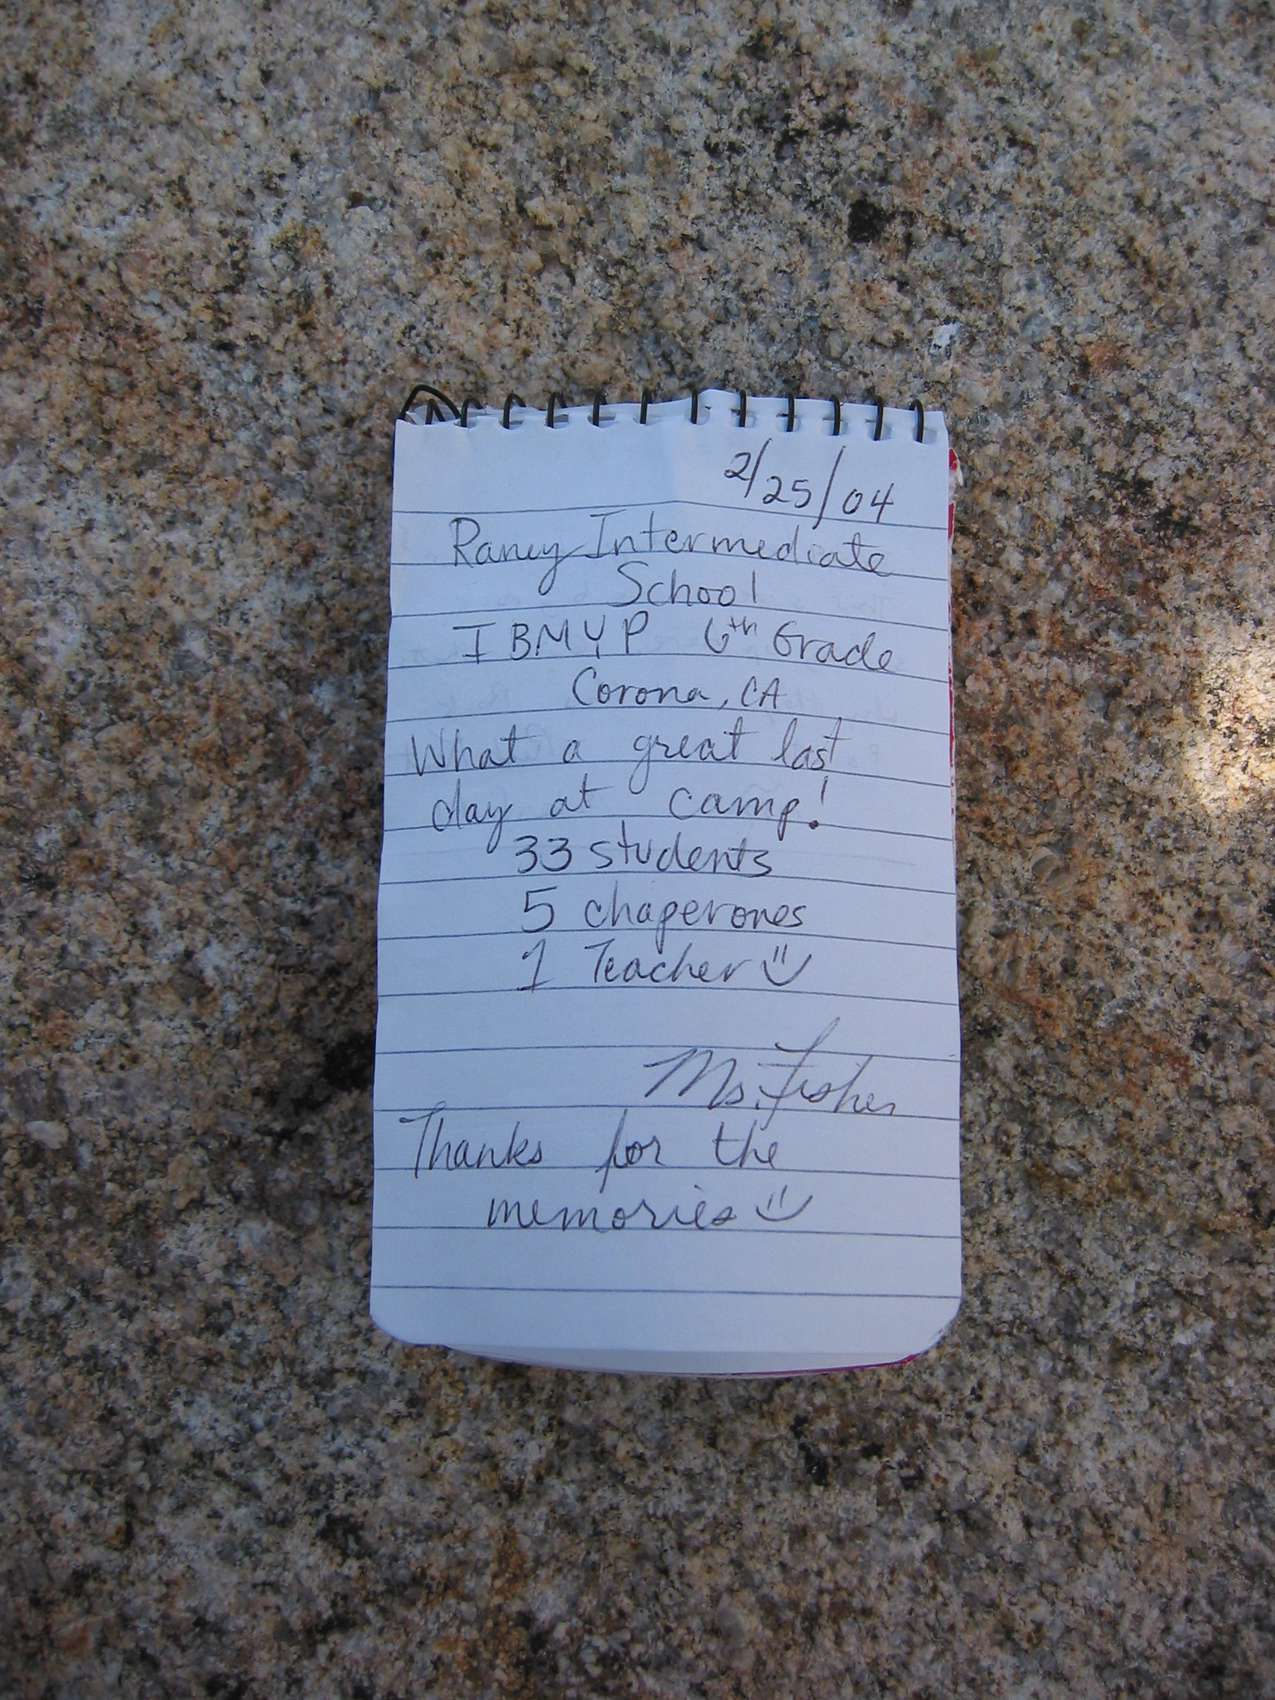 2/25/04
Raney Intermediate
School
IBMYP 6th Grade
Corona, CA
What a great last
day at camp!
33 students
5 chaperones
1 Teacher
Ms. Fisher
Thanks for the
memories